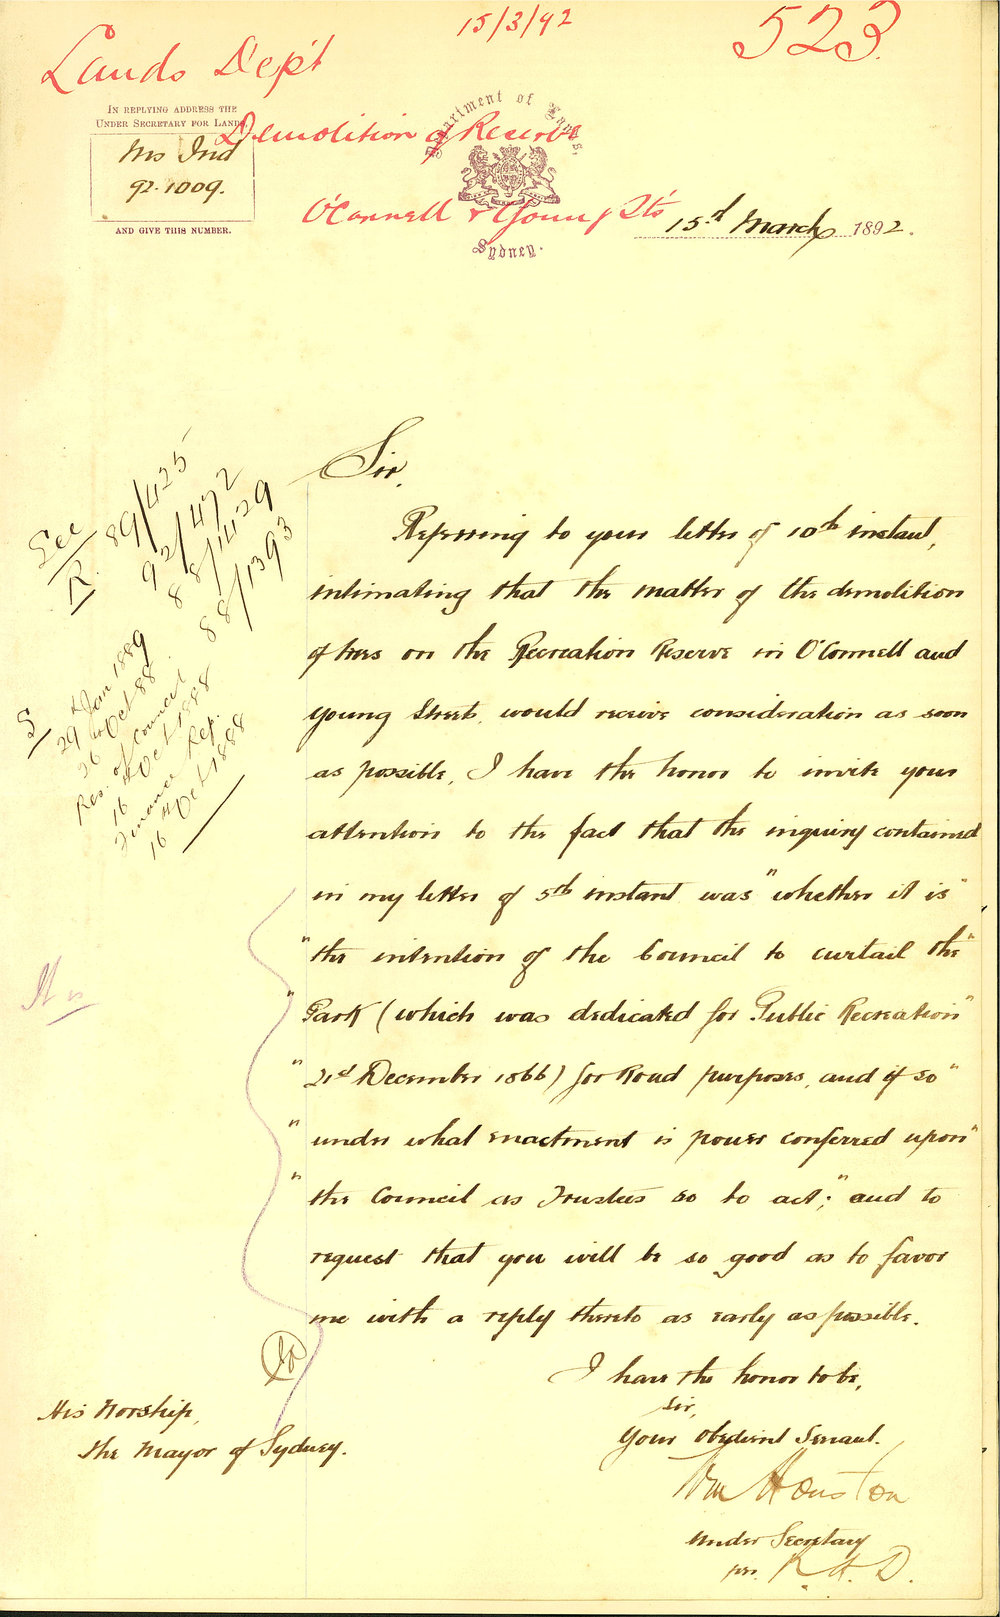 15/3/92
523.
Lands Dept
IN REPLYING ADDRESS THE
UNDER SECRETARY FOR LANDS,
Ms Ind
92.1009.
AND GIVE THIS NUMBER.
Demolition of Reserve
O'Connell & Young Sts
Department of Lands,
Sydney.
15th March 1892.
See
R. 89/425
92/472
88/1429
88/1393
29th Jan 1889
26 Oct 88
Res. of Council
16th Oct 1888
Finance Rep.
16th Oct 1888
Sir,
Referring to your letter of 10th instant,
intimating that the matter of the demolition
of trees on the Recreation Reserve in O'Connell and
Young Streets, would receive consideration as soon
as possible, I have the honor to invite your
attention to the fact that the inquiry contained
in my letter of 5th instant was "whether it is"
"the intention of the Council to curtail the"
"Park (which was dedicated for Public Recreation"
"21st December 1866) for Road purposes, and if so"
"under what enactment is power conferred upon"
"the Council as Trustees so to act;" and to
request that you will be so good as to favor
me with a reply thereto as early as possible.
I have the honor to be,
Sir,
Your obedient Servant.
Wm Houston
Under Secretary
per. R. H. D.
His Worship,
The Mayor of Sydney.